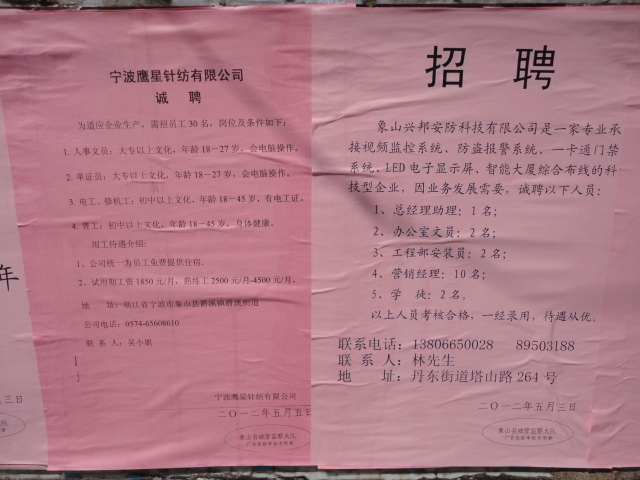 宁波鹰星针纺有限公司
诚 聘
为适应企业生产，需招员工30名，岗位及条件如下：
1. 人事文员：大专以上文化，年龄18－27岁，会电脑操作。
2. 单证员：大专以上文化，年龄18－27岁，会电脑操作。
3. 电工、修机工：初中以上文化，年龄18－45岁，有电工证。
4. 普工：初中以上文化，年龄18－45岁，身体健康。
用工待遇介绍：
1、公司统一为员工免费提供住宿。
2、试用期工资1850元/月，熟练工2500元/月-4500元/月。
地 址：浙江省宁波市象山县爵溪镇
公司电话：0574-65608610
联 系 人：吴小姐
宁波鹰星针纺有限公司
二〇一二年五月五日
象山县城管监察大队
招 聘
象山兴邦安防科技有限公司是一家专业承
接视频监控系统、防盗报警系统、一卡通门禁
系统、LED电子显示屏、智能大厦综合布线的科
技型企业，因业务发展需要，诚聘以下人员：
1、总经理助理：1名；
2、办公室文员：2名；
3、工程部安装员：2名；
4、营销经理：10名；
5、学 徒：2名。
以上人员考核合格，一经录用，待遇从优。
联系电话：13806650028 89503188
联 系 人：林先生
地 址：丹东街道塔山路264号
二〇一二年五月三日
象山县城管监察大队
年
三日